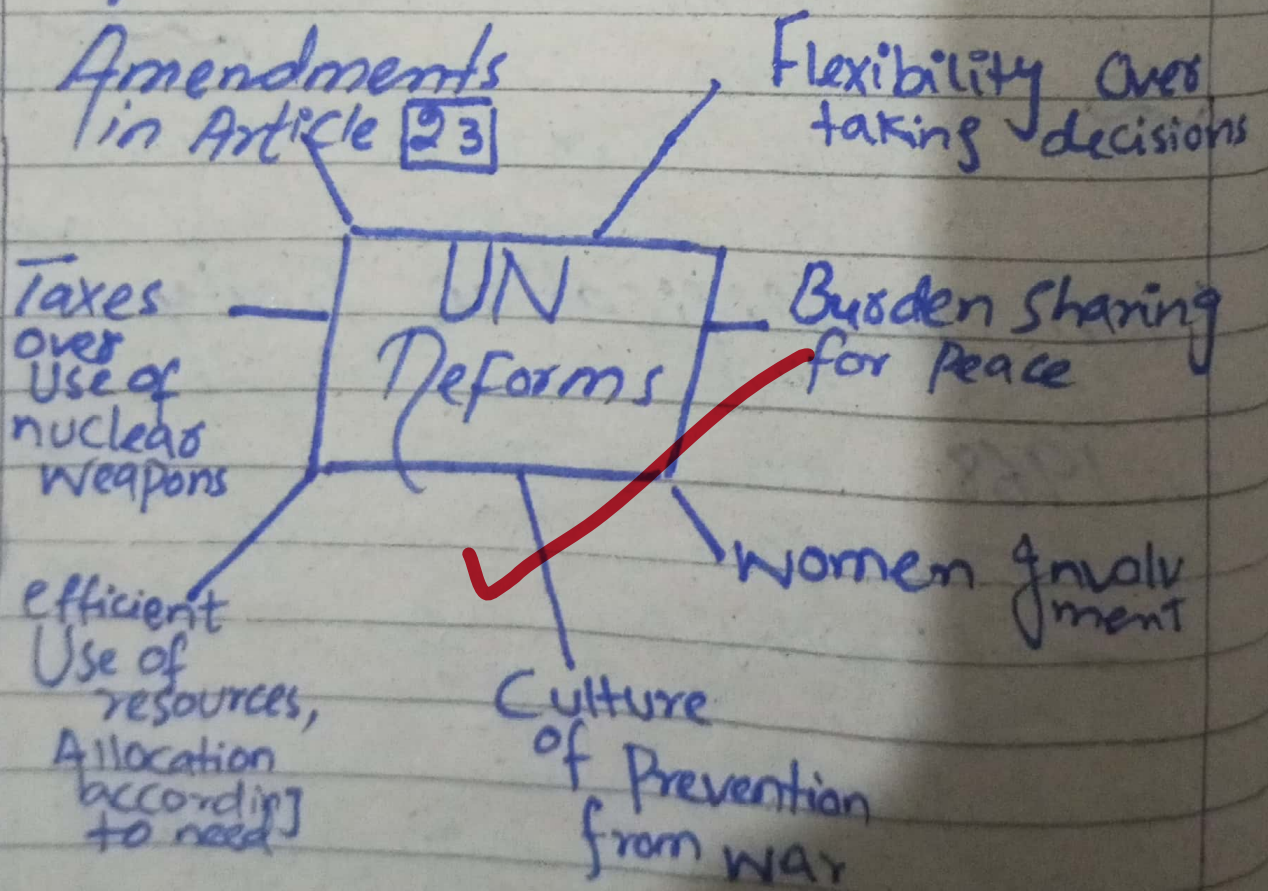 Amendments
in Article 23
Flexibility over
taking decisions
UN
Reforms
Taxes
over
Use of
nuclear
weapons
Burden Sharing
for Peace
Women Involv
ment
efficient
Use of
resources,
Allocation
according
to need
Culture
of Prevention
from war